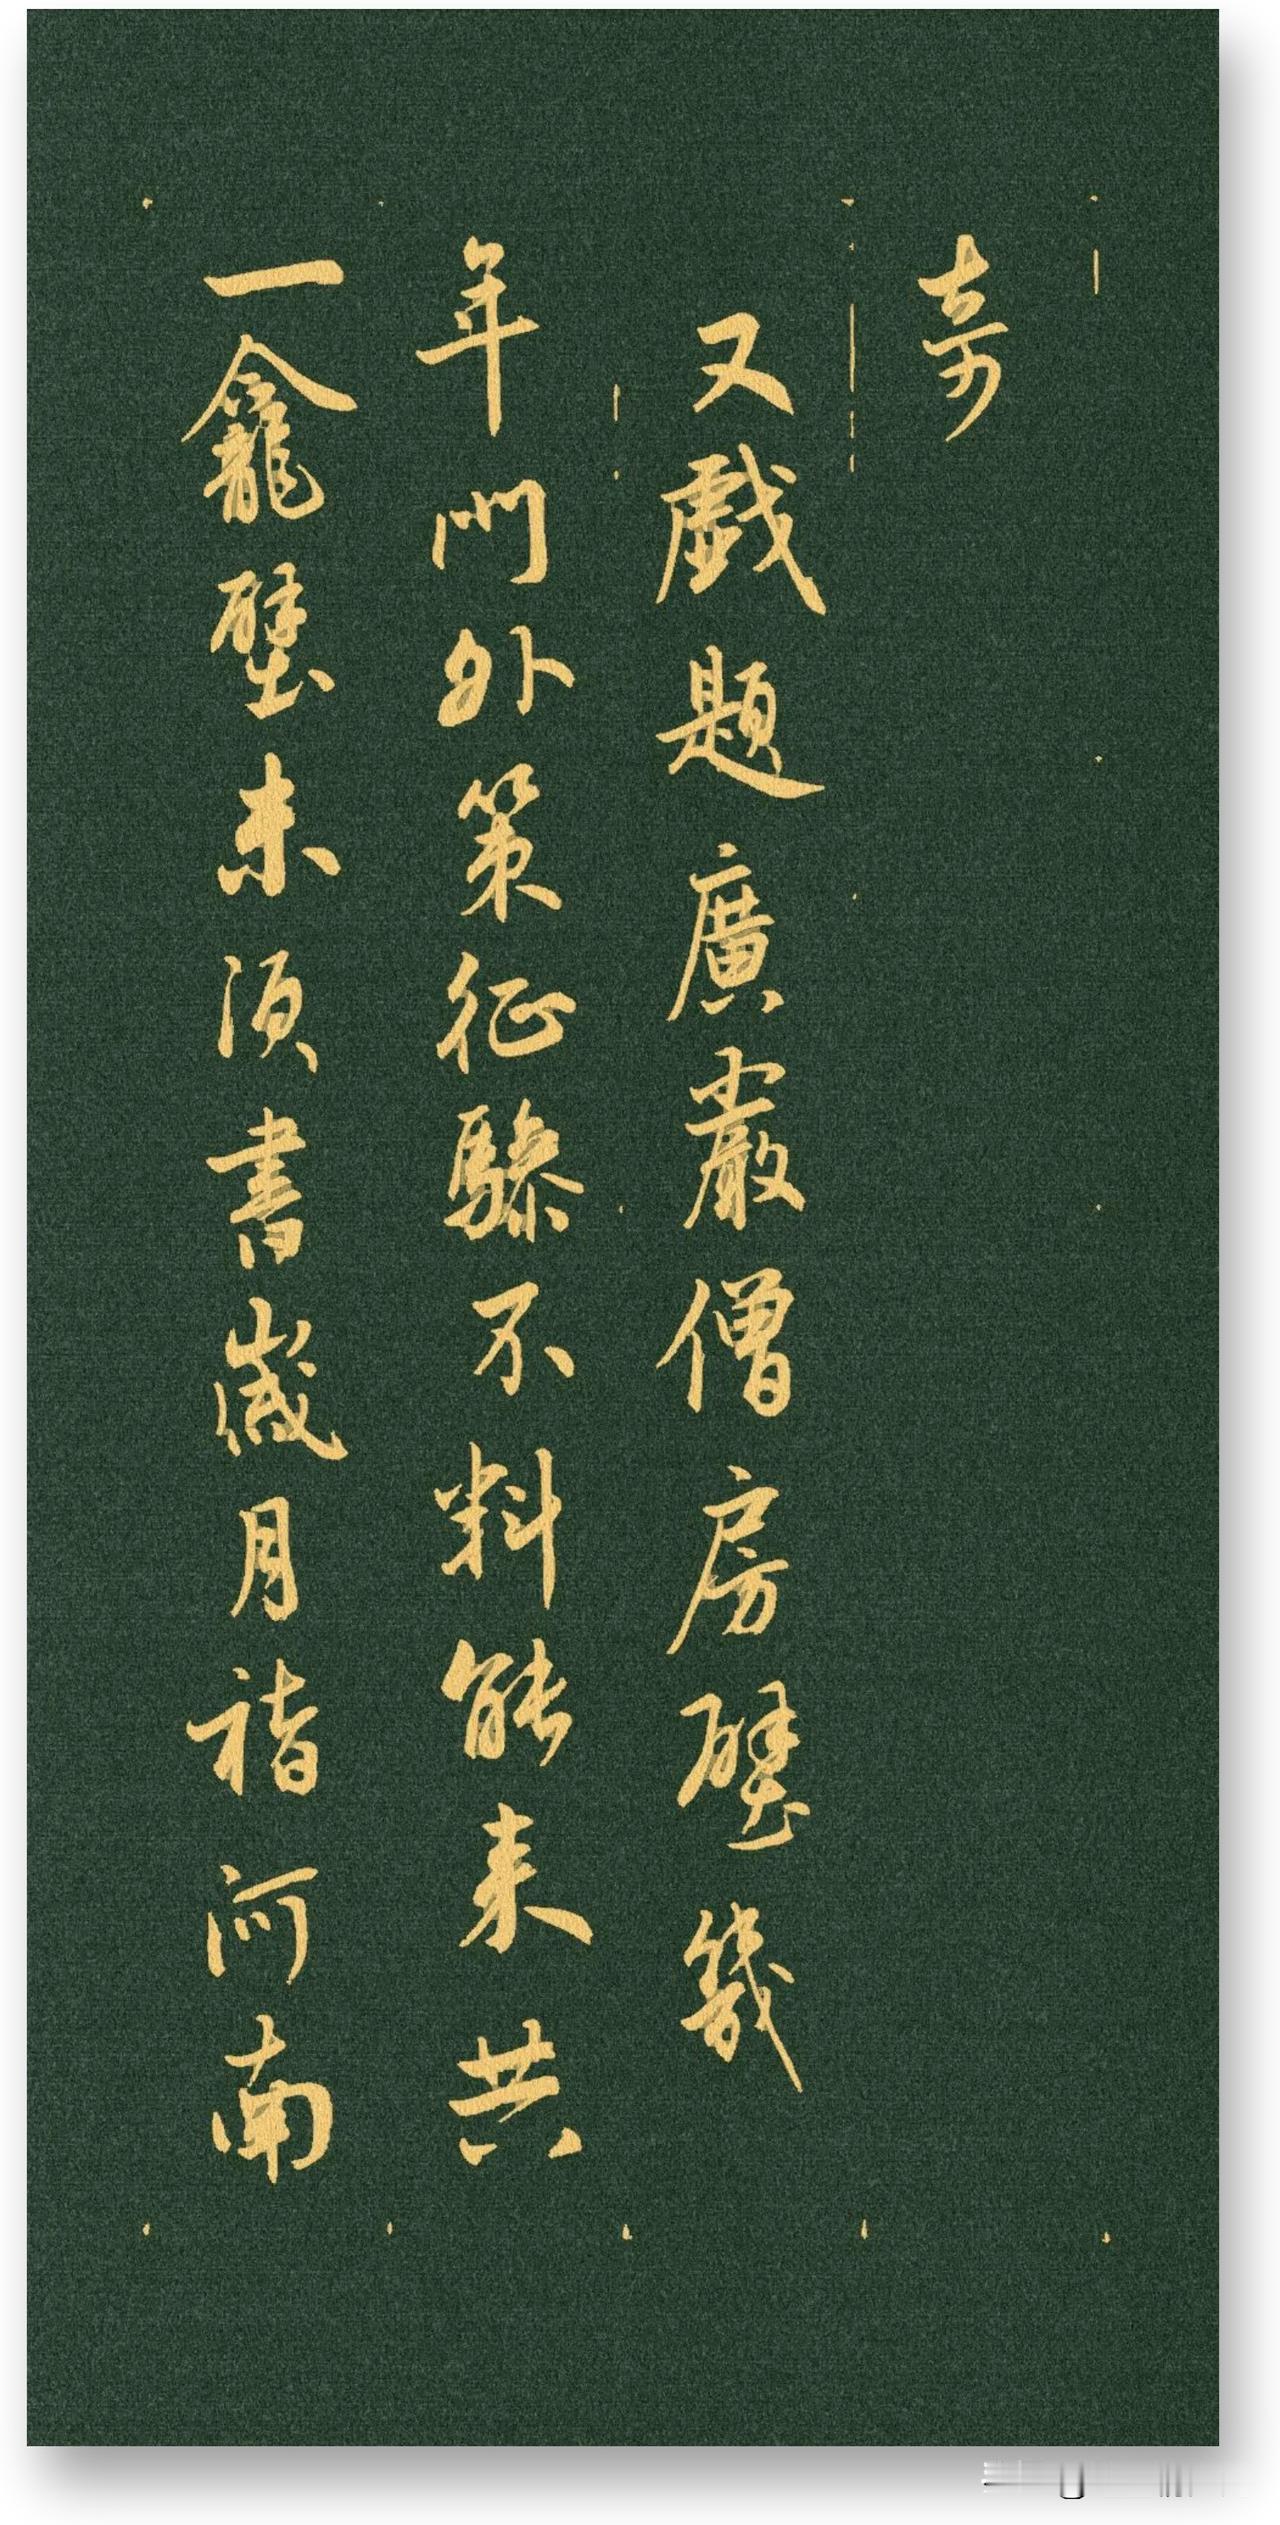 奇
又戲題廣嚴僧房壁幾
年門外策征驂不料能來共
一龕壁未須書歲月指河南